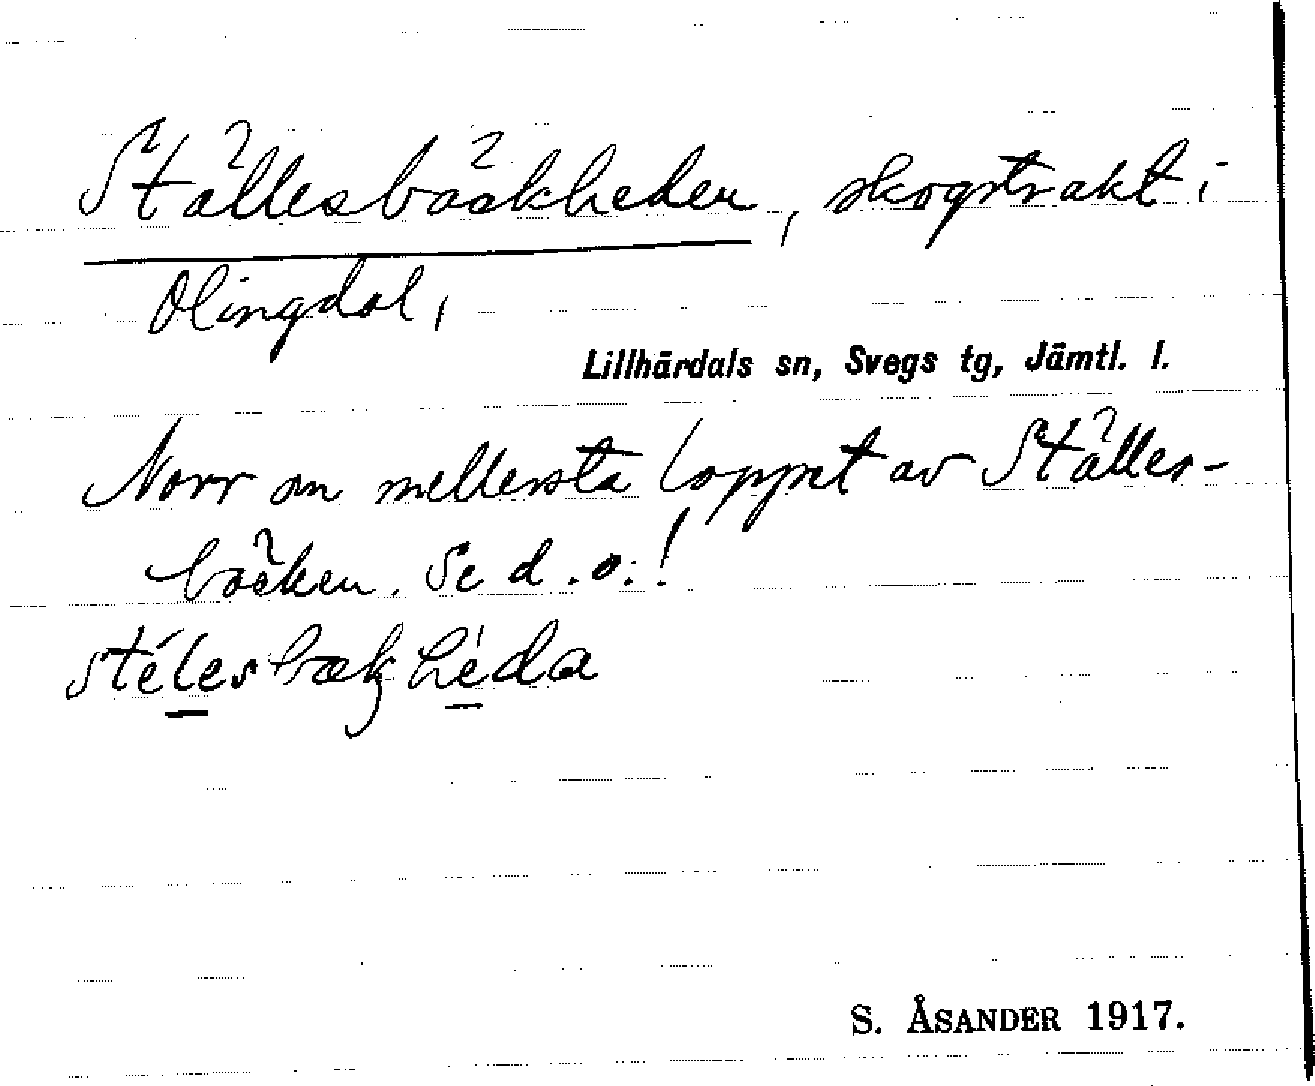 Ställesbäckheden, skogstrakt i
Olingdal,
Lillhärdals sn, Svegs tg, Jämtl. l.
Norr om mellersta loppet av Ställes-
bäcken. Se d. o.!
stélesbækhèda
S. ÅSANDER 1917.